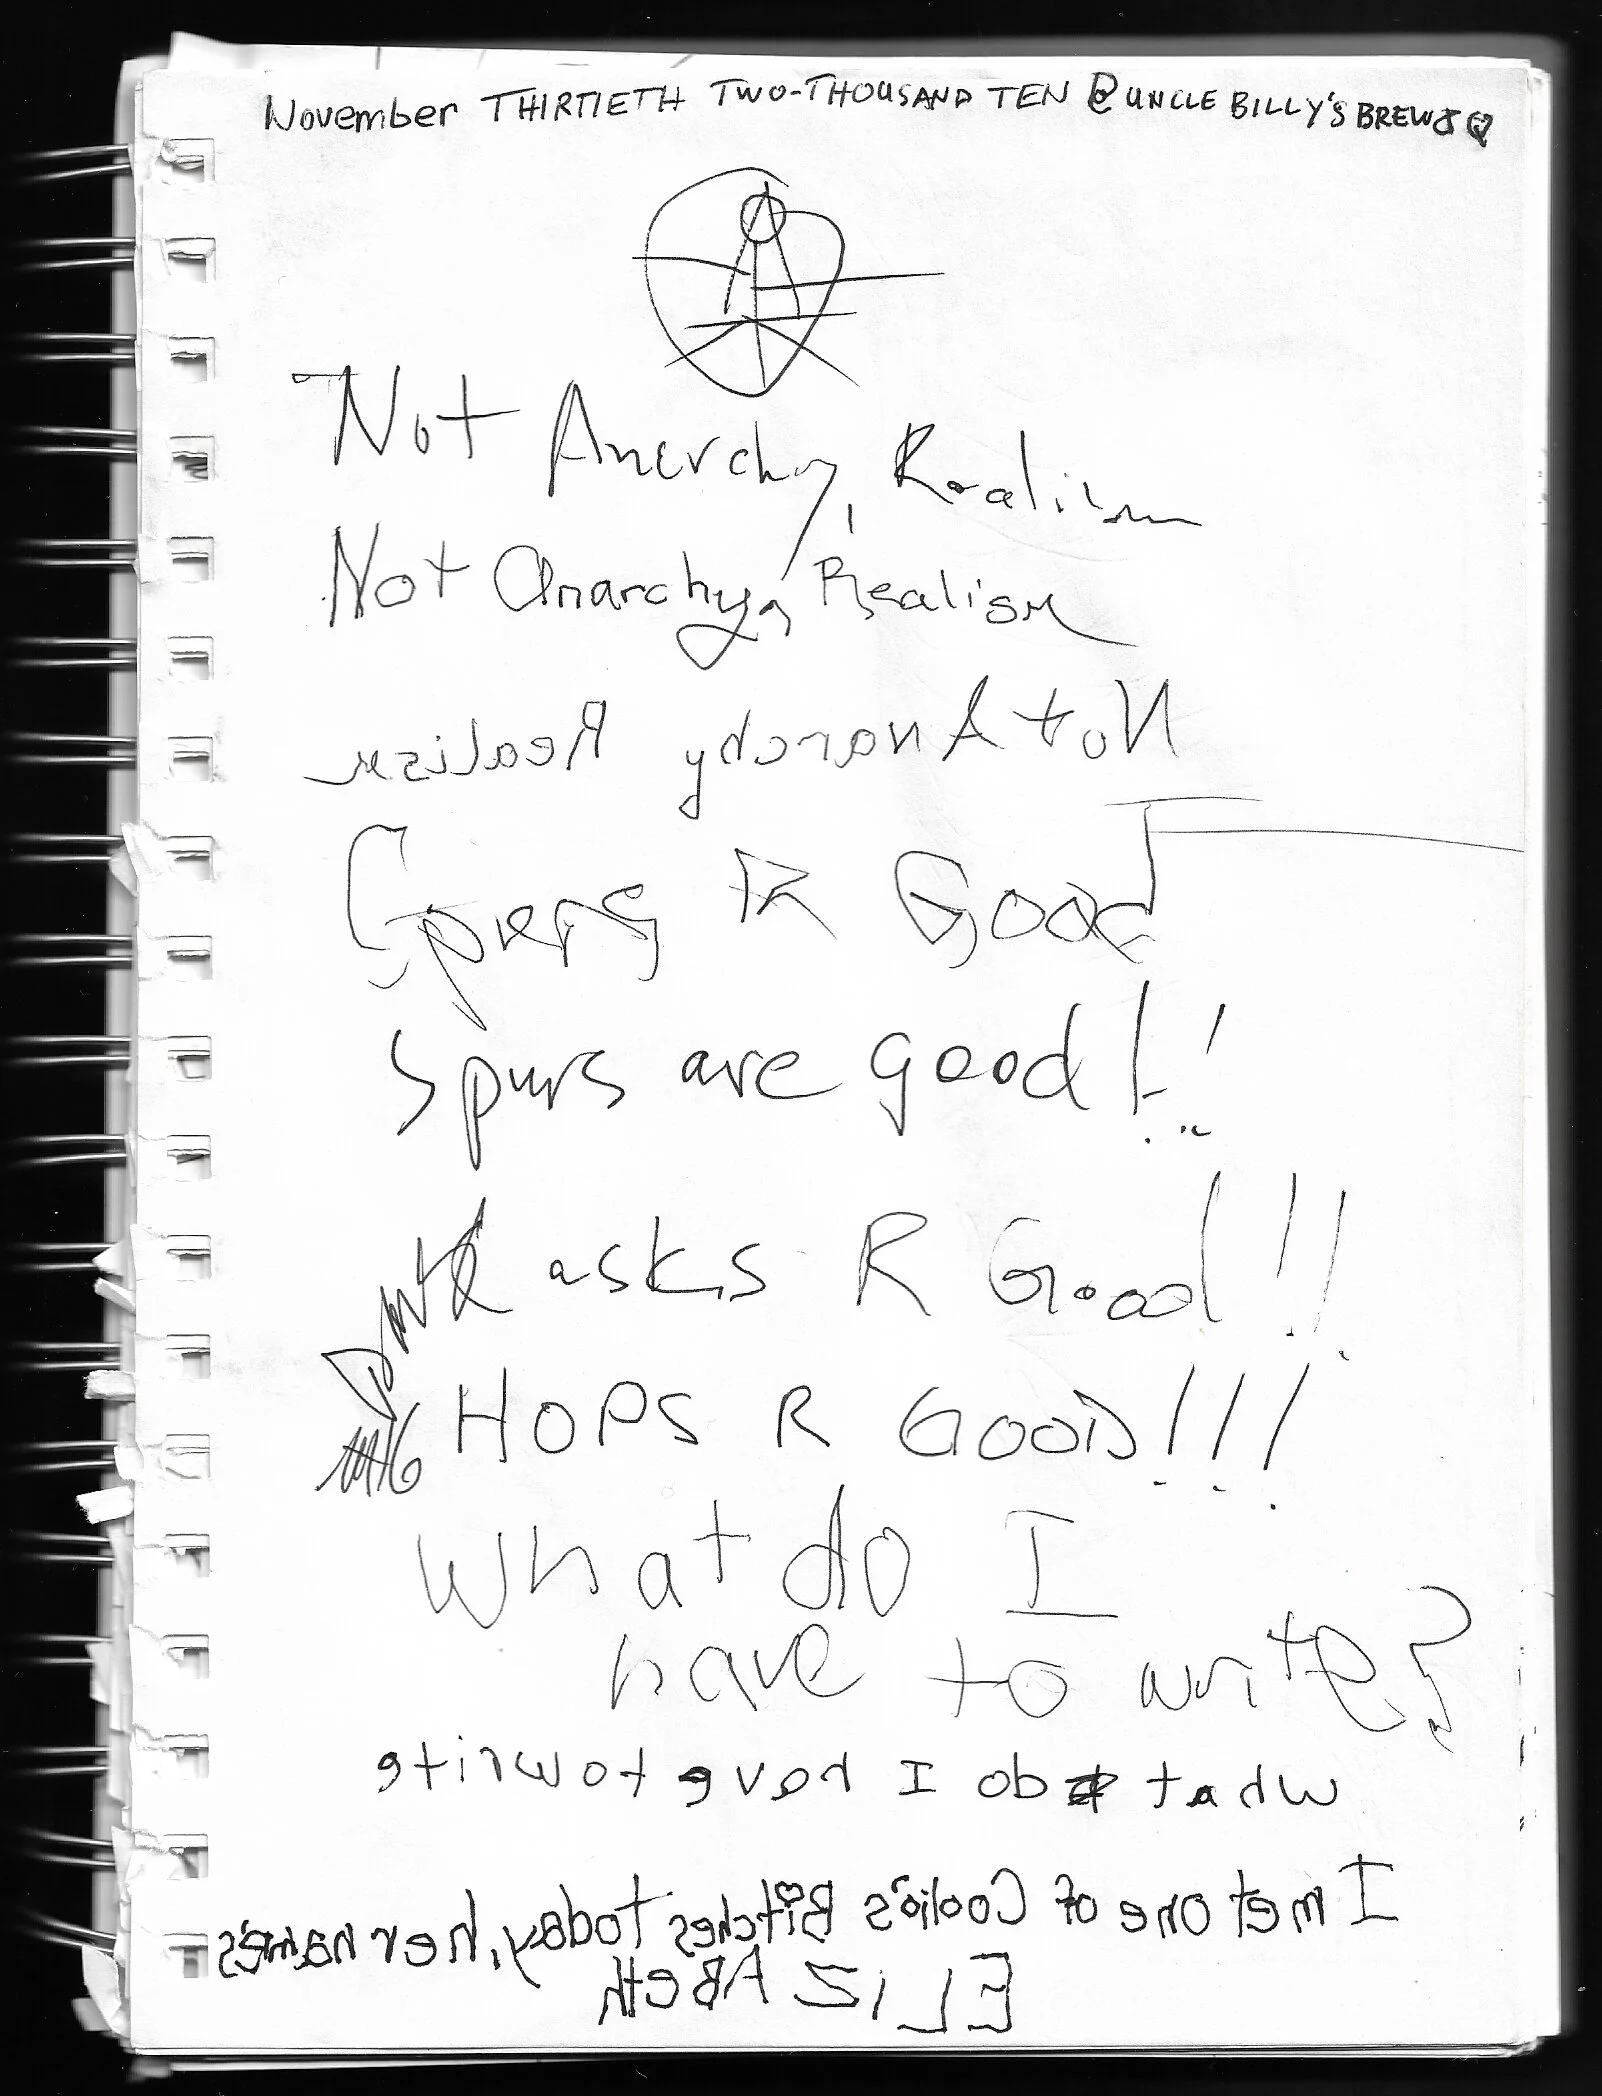 November THIRTIETH TWO-THOUSAND TEN @ UNCLE BILLY'S BREW & Q
Not Anerchy, Realism
Not Anarchy, Realism
Not Anarchy Realism
Spurs R Good
Spurs are good!!
asks R Good!!
HOPS R GOOD!!!
What do I
have to write?
what do I have to write
I met one of Coolio's Bitches today, her name's
ELIZABeth